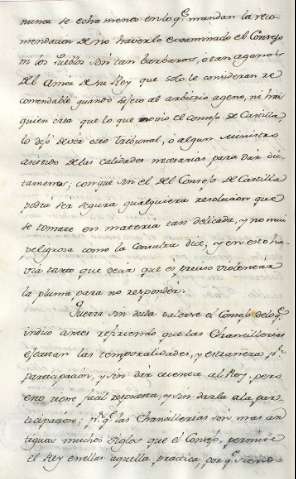 nunca se echo menos en lo q.e mandan la reco-
mendacion de no haverlo examinado el Consejo
ni los Pueblos son tan barbaros, o tan agenos
del Amor de su Rey que solo le consideran re
comendable quando sujeto al arbitrio ageno, ni hai
quien crea que lo que no vio el Consejo de Castilla
lo dejó de ver otro Tribunal, o algun Ministro
asistido de las calidades necesarias para dar dic-
tamenes, conque sin el del Consejo de Castilla
podra ser segura qualquiera resolucion que
se tomare en materia tan delicada, y no mui
peligrosa como la Consulta dice, y en esto ha-
via tanto que decir que es preciso violentar
la pluma para no responder.
Quiere sin duda valerse el Consejo de lo q.e
indicó antes refiriendo que las Chancillerias
ejecutan las temporalidades, y estrañeza p.r
participacion, y sin dar cuenta al Rey, pero
esto tiene facil respuesta, y sin darla a la par-
ticipacion; p.r q.e las Chancillerias son mas an-
tiguas muchos siglos que el Consejo, permite
el Rey en ellas aquella practica, por q.e